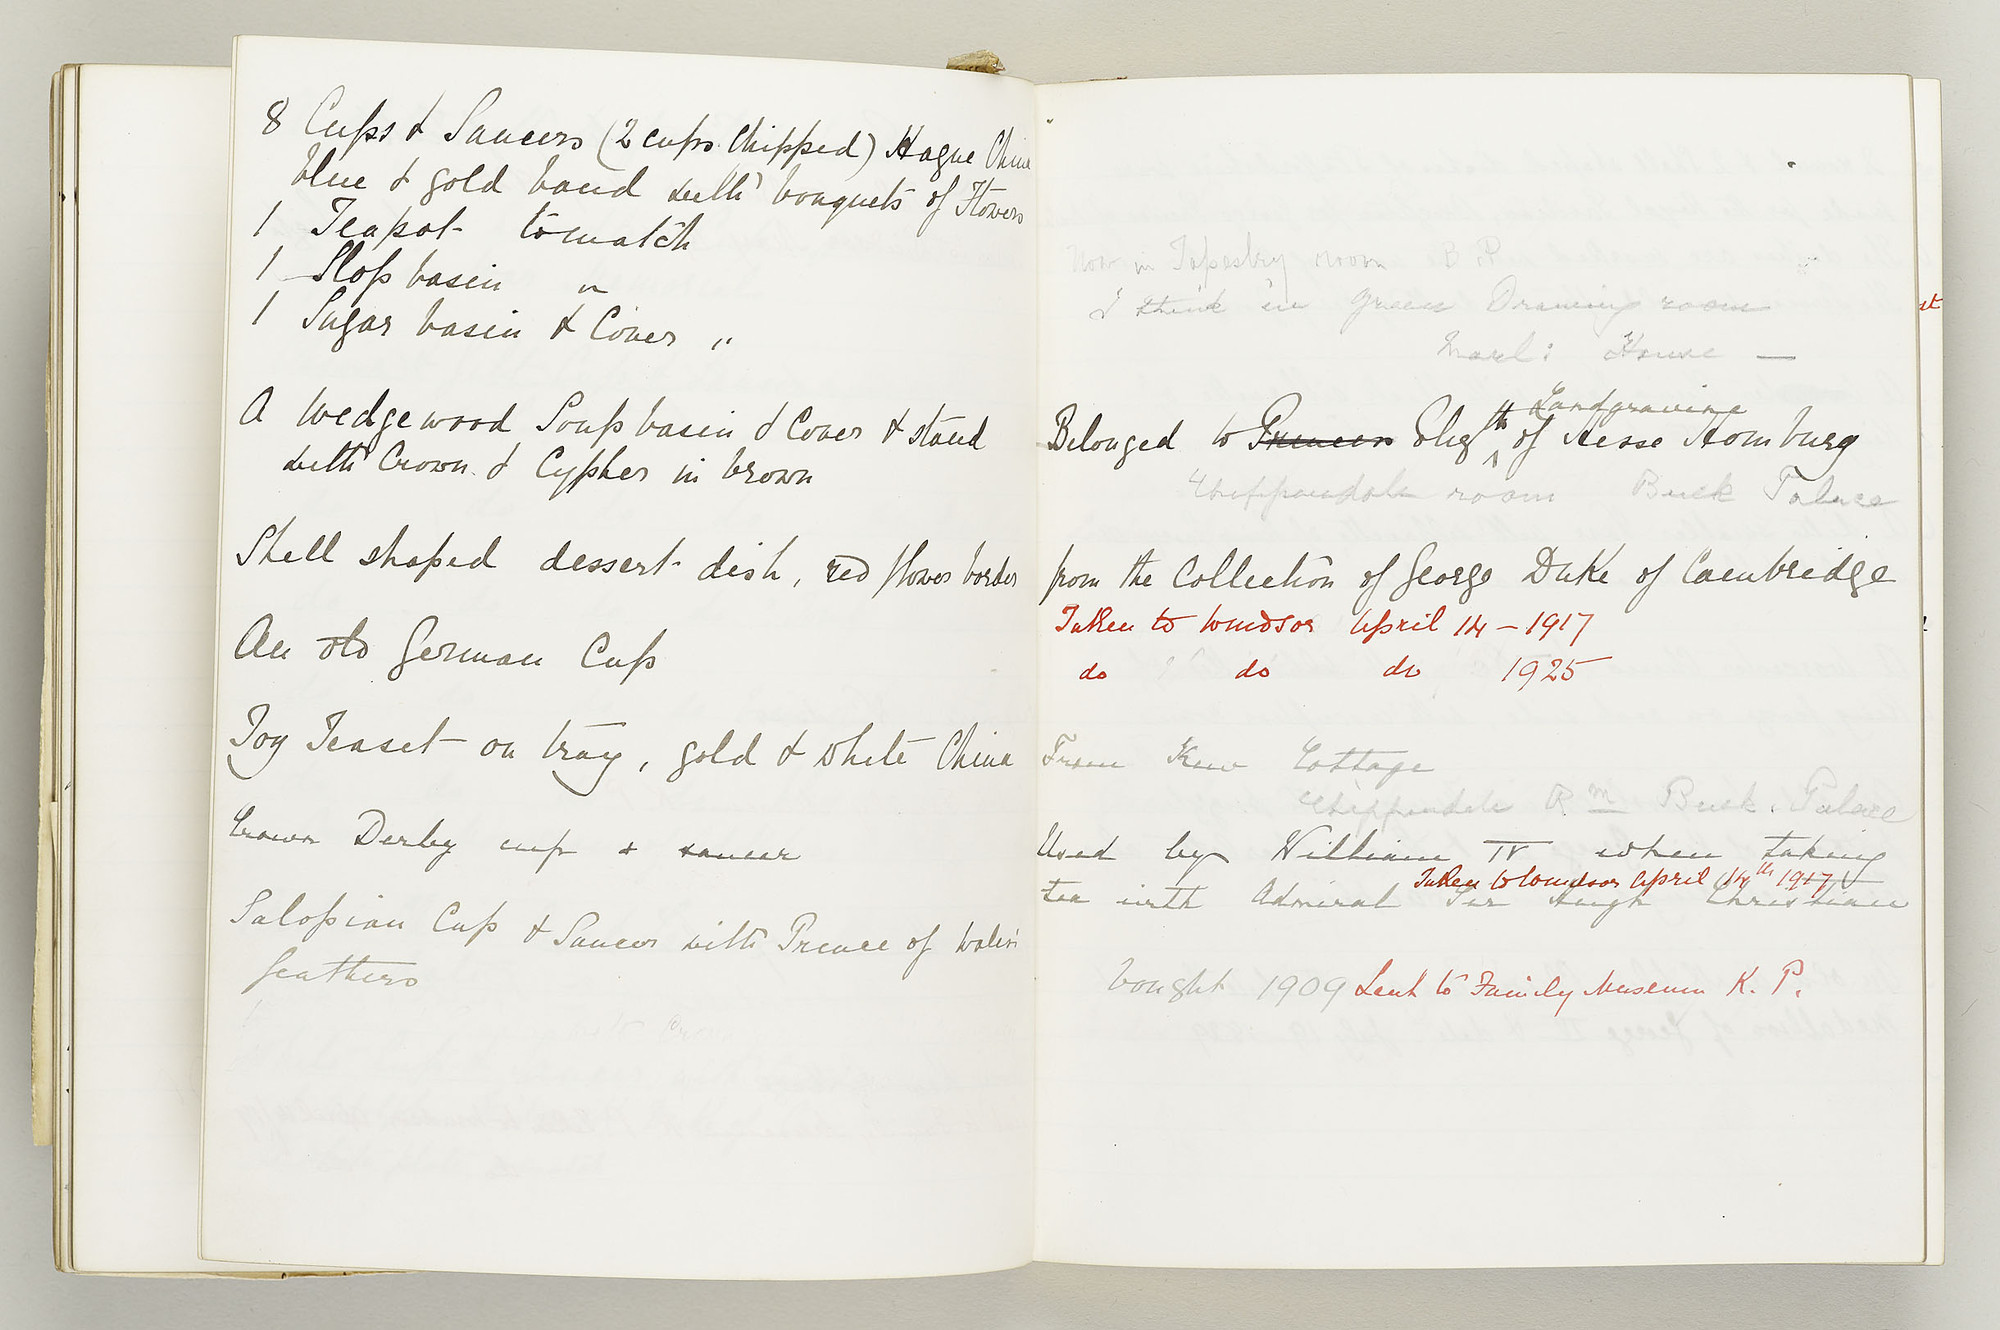 8 Cups & Saucers (2 cups chipped) Hague China
blue & gold band with bouquets of Flowers
1 Teapot to match
1 Slop basin "
1 Sugar basin & Cover "
A Wedgewood Soup basin & Cover & stand
with Crown & Cypher in brown
Shell shaped dessert dish, red flower border
An old German Cup
Toy Teaset on tray, gold & white China
Crown Derby cup & saucer
Salopian Cup & Saucer with Prince of Wales's
feathers
Now in Tapestry room B. P.
I think in Green Drawing room
Marl: House —
Landgravine
Belonged to Princess Elizth of Hesse Homburg
Chippendale room Buck Palace
from the Collection of George Duke of Cambridge
Taken to Windsor April 14 – 1917
do do do 1925
From Kew Cottage
Chippendale Rm Buck. Palace
Used by William IV when taking
Taken to Windsor April 14th 1917
tea with Admiral Sir Hugh Christian
bought 1909 Lent to Family Museum K. P.